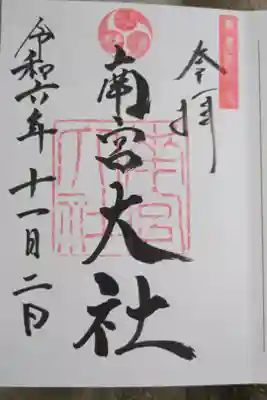 奉拝
南宮大社
令和六年十一月二日